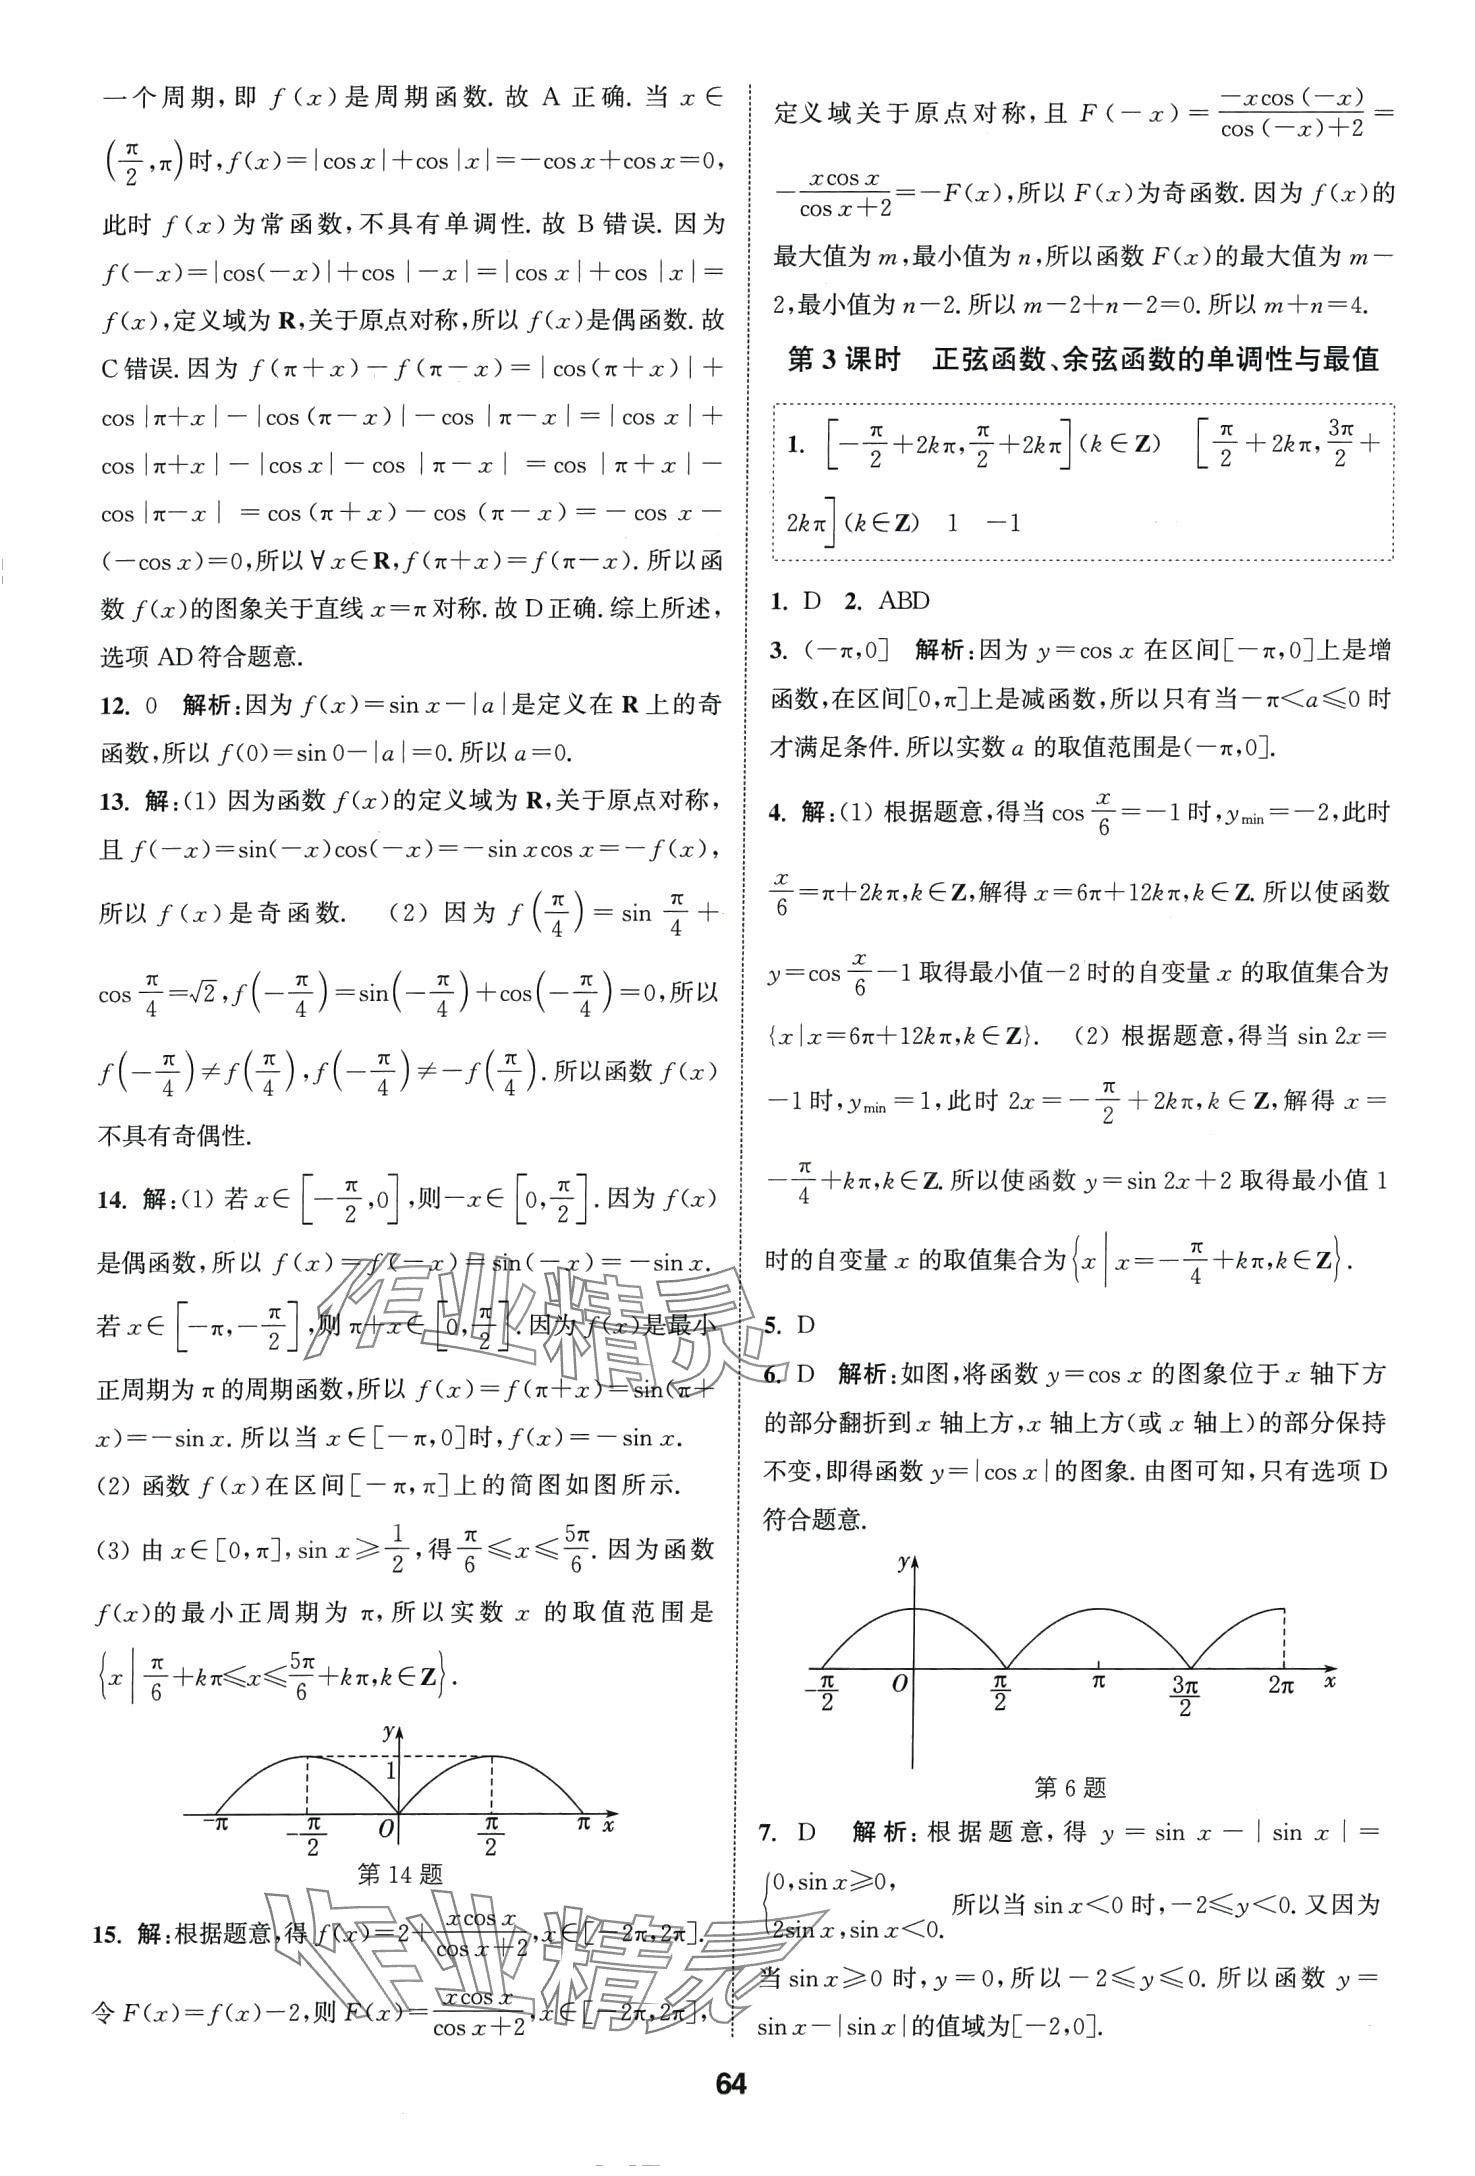 一个周期,即 f(x)是周期函数.故 A 正确.当 x∈
(π/2,π)时,f(x)=|cos x|+cos|x|=-cos x+cos x=0,
此时 f(x)为常函数,不具有单调性.故 B 错误.因为
f(-x)=|cos(-x)|+cos|-x|=|cos x|+cos|x|=
f(x),定义域为 R,关于原点对称,所以 f(x)是偶函数.故
C 错误.因为 f(π+x)-f(π-x)=|cos(π+x)|+
cos|π+x|-|cos(π-x)|-cos|π-x|=|cos x|+
cos|π+x|-|cos x|-cos|π-x|=cos|π+x|-
cos|π-x|=cos(π+x)-cos(π-x)=-cos x-
(-cos x)=0,所以∀x∈R,f(π+x)=f(π-x).所以函
数 f(x)的图象关于直线 x=π 对称.故 D 正确.综上所述,
选项 AD 符合题意.
12. 0 解析:因为 f(x)=sin x-|a|是定义在 R 上的奇
函数,所以 f(0)=sin 0-|a|=0.所以 a=0.
13. 解:(1) 因为函数 f(x)的定义域为 R,关于原点对称,
且 f(-x)=sin(-x)cos(-x)=-sin xcos x=-f(x),
所以 f(x)是奇函数. (2) 因为 f(π/4)=sin π/4+
cos π/4=√2,f(-π/4)=sin(-π/4)+cos(-π/4)=0,所以
f(-π/4)≠f(π/4),f(-π/4)≠-f(π/4).所以函数 f(x)
不具有奇偶性.
14. 解:(1) 若 x∈[-π/2,0],则-x∈[0,π/2].因为 f(x)
是偶函数,所以 f(x)=f(-x)=sin(-x)=-sin x.
若 x∈[-π,-π/2],则 π+x∈[0,π/2].因为 f(x)是最小
正周期为 π 的周期函数,所以 f(x)=f(π+x)=sin(π+
x)=-sin x.所以当 x∈[-π,0]时,f(x)=-sin x.
(2) 函数 f(x)在区间[-π,π]上的简图如图所示.
(3) 由 x∈[0,π],sin x≥1/2,得 π/6≤x≤5π/6.因为函数
f(x)的最小正周期为 π,所以实数 x 的取值范围是
{x|π/6+kπ≤x≤5π/6+kπ,k∈Z}.
y
1
-π -π/2 O π/2 π x
第 14 题
15. 解:根据题意,得 f(x)=2+xcos x/(cos x+2),x∈[-2π,2π].
令 F(x)=f(x)-2,则 F(x)=xcos x/(cos x+2),x∈[-2π,2π],
定义域关于原点对称,且 F(-x)=-xcos(-x)/(cos(-x)+2)=
-xcos x/(cos x+2)=-F(x),所以 F(x)为奇函数.因为 f(x)的
最大值为 m,最小值为 n,所以函数 F(x)的最大值为 m-
2,最小值为 n-2.所以 m-2+n-2=0.所以 m+n=4.
第 3 课时 正弦函数、余弦函数的单调性与最值
1. [-π/2+2kπ,π/2+2kπ](k∈Z) [π/2+2kπ,3π/2+
2kπ](k∈Z) 1 -1
1. D 2. ABD
3. (-π,0] 解析:因为 y=cos x 在区间[-π,0]上是增
函数,在区间[0,π]上是减函数,所以只有当-π<a≤0 时
才满足条件.所以实数 a 的取值范围是(-π,0].
4. 解:(1) 根据题意,得当 cos x/6=-1 时,ymin=-2,此时
x/6=π+2kπ,k∈Z,解得 x=6π+12kπ,k∈Z.所以使函数
y=cos x/6-1 取得最小值-2 时的自变量 x 的取值集合为
{x|x=6π+12kπ,k∈Z}. (2) 根据题意,得当 sin 2x=
-1 时,ymin=1,此时 2x=-π/2+2kπ,k∈Z,解得 x=
-π/4+kπ,k∈Z.所以使函数 y=sin 2x+2 取得最小值 1
时的自变量 x 的取值集合为{x|x=-π/4+kπ,k∈Z}.
5. D
6. D 解析:如图,将函数 y=cos x 的图象位于 x 轴下方
的部分翻折到 x 轴上方,x 轴上方(或 x 轴上)的部分保持
不变,即得函数 y=|cos x|的图象.由图可知,只有选项 D
符合题意.
y
-π/2 O π/2 π 3π/2 2π x
第 6 题
7. D 解析:根据题意,得 y=sin x-|sin x|=
{0,sin x≥0,
2sin x,sin x<0. 所以当 sin x<0 时,-2≤y<0.又因为
当 sin x≥0 时,y=0,所以-2≤y≤0.所以函数 y=
sin x-|sin x|的值域为[-2,0].
64
作业精灵
作业精灵